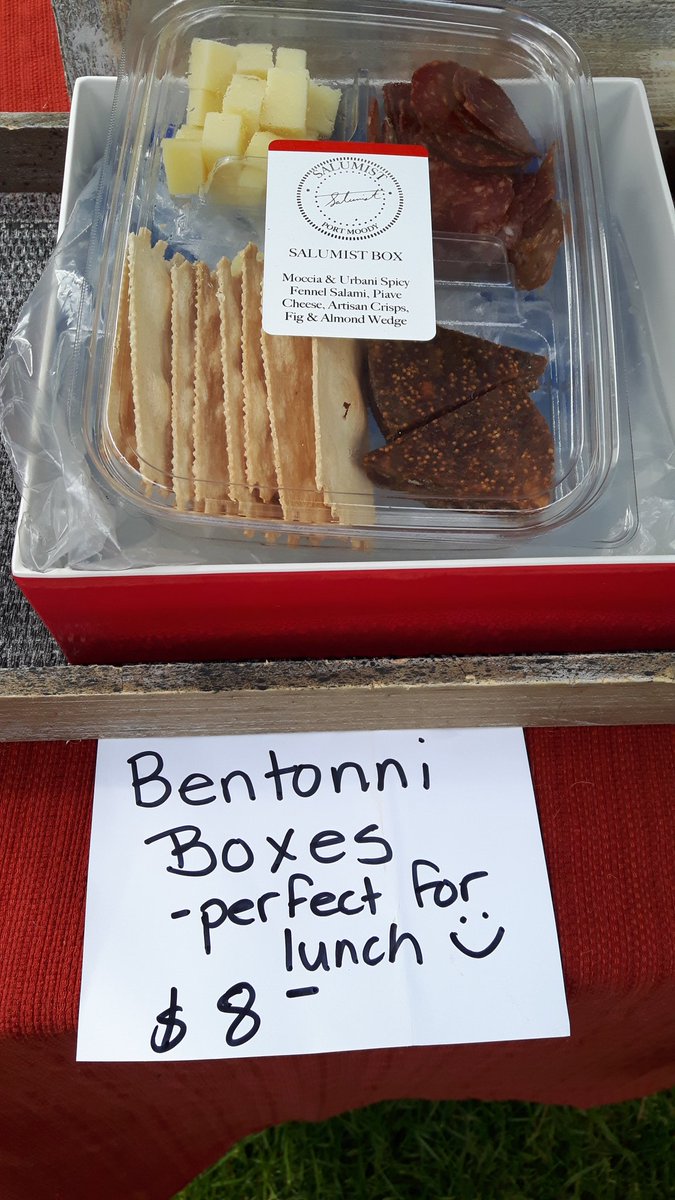 SALUMIST
Salumist
PORT MOODY
SALUMIST BOX
Moccia & Urbani Spicy
Fennel Salami, Piave
Cheese, Artisan Crisps,
Fig & Almond Wedge
Bentonni
Boxes
-perfect for
lunch
$8-